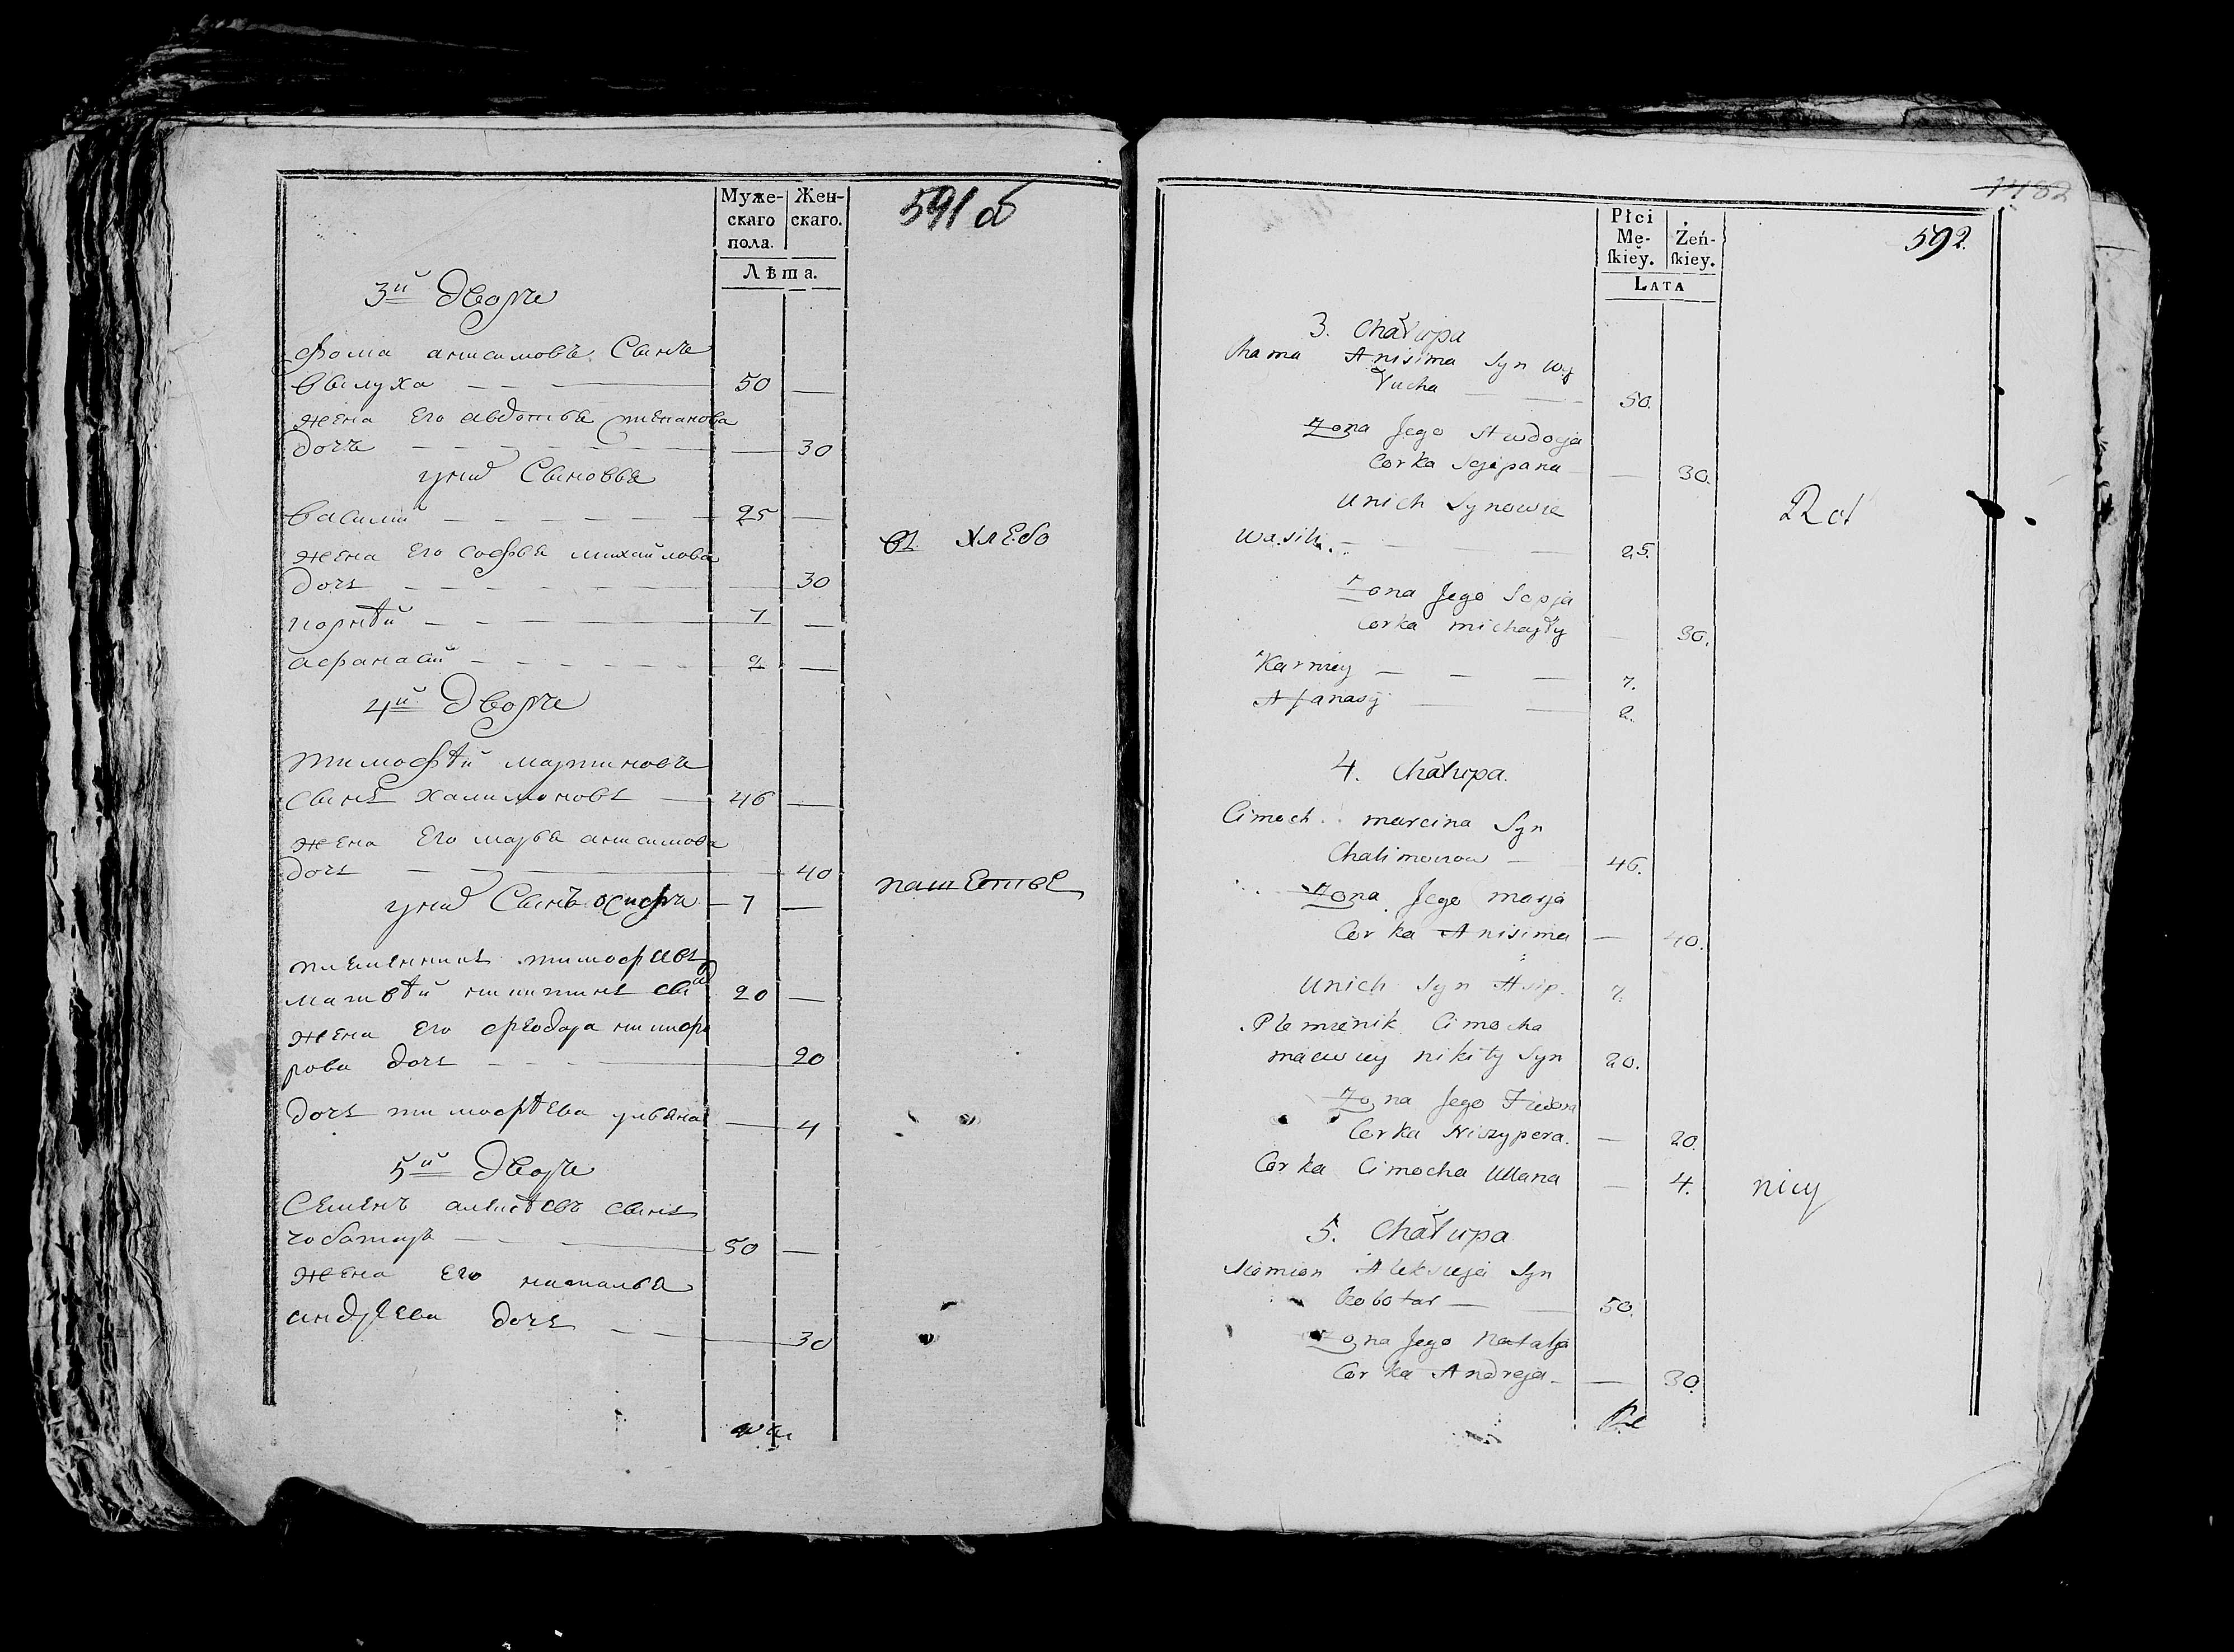 Муже- Жен-
скаго скаго.
пола.
Лѣта.
591 об
3й Дворъ
Фома анисимовъ Сынъ
Вылуха 50
жена Его авдотья степанова
дочь 30
у них Сыновья
Василий 25
жена Его софья михайлова
дочь 30
корнѣй 7
афанасий 2
въ хлебо
4й Дворъ
тимофѣй мартиновъ
сынъ халимоновъ 46
жена Его марья анисимова
дочь 40
у них Сынъ осифъ 7
пашество
племенникъ тимофѣевъ
матвѣй никитинъ сын 20
жена Его феодора никифо
рова дочь 20
дочь тимофѣева ульяна 4
5й Дворъ
Семенъ алексѣевъ сынъ
чоботарь 50
жена Его наталья
андреева дочь 30
1482
592.
Płci
Mę- Żeń-
skiey. skiey.
LATA
3. Chałupa
Chama Anisima Syn Wy
łucha 50.
Żona Jego Awdocja
Corka Scipana 30.
Unich Synowie
Wasili 25.
Żona Jego Sopja
Corka michajły 30.
Karniey 7.
Afanasy 2.
Rol
4. Chałupa.
Cimoch marcina Syn
Chalimonow 46.
Żona Jego marja
Corka Anisima 40.
Unich Syn Asip. 7.
Plemienik Cimocha
maćwiey nikity Syn 20.
Żona Jego Fiedora
Corka Niczypera. 20.
Corka Cimocha Ullana 4.
nicy
5. Chałupa
Siomion Aleksieja Syn
Czobotar 50.
Żona Jego Natalja
Corka Andreja 30.